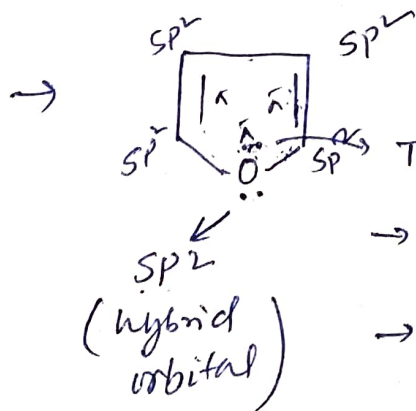 → SP² SP²
π π
π
SP² O SP² → T
SP2 →
(hybrid →
orbital)